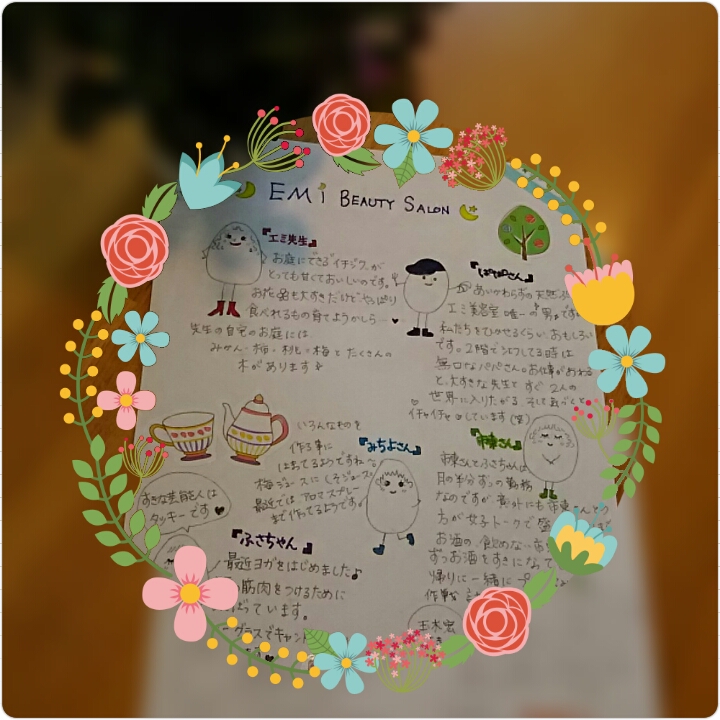 EMi BEAUTY SALON
『エミ先生』
お庭にできるイチジクが
とっても甘くておいしいのです。
お花も大すきだけどやっぱり
食べれるもの育てようかしら…♥
先生の自宅のお庭には、
みかん・柿・桃・梅とたくさんの
木があります
『ぱぱさん』
あいかわらずの天然
エミ美容室唯一の男。です
私たちをひかせるくらい、おもしろい
です。2階でシェフしてる時は
無口なパパさん。お仕事がおわる
と、大すきな先生とすぐ2人の
世界に入りたがる。そして
イチャイチャしています(笑)
いろんなものを
作る事に
はまってるようですね〜
梅ジュースに しそジュース
最近では アロマスプレー
まで作ってるようです
『みちよさん』
すきな芸能人は
タッキーです♥
『市東さん』
市東さんとふさちゃんは
月の半分ずつの勤務
なのですが、意外にも市東さんとう
方が女子トークで盛
お酒の飲めない市
ずつお酒をすきになって
帰りに一緒に
『ふさちゃん』
最近ヨガをはじめました♪
筋肉をつけるために
ばっています。
グラスでキャン
玉木宏